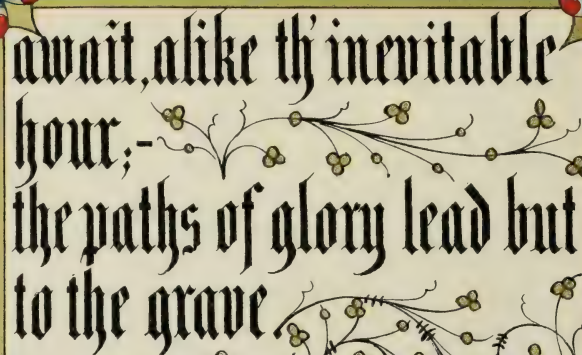 await, alike th' inevitable
hour;-
the paths of glory lead but
to the grave.